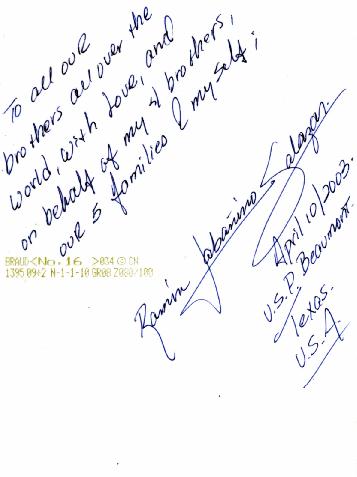 To all our
brothers all over the
world, with love, and
on behalf of my 4 brothers,
our 5 families & myself;
BRAUD<No. 16 >034 © CN
1395 09+2 N-1-1-10 GR0B Z080/100
Ramón Labañino Salazar.
April 10/2003.
U.S.P. Beaumont.
Texas.
U.S.A.